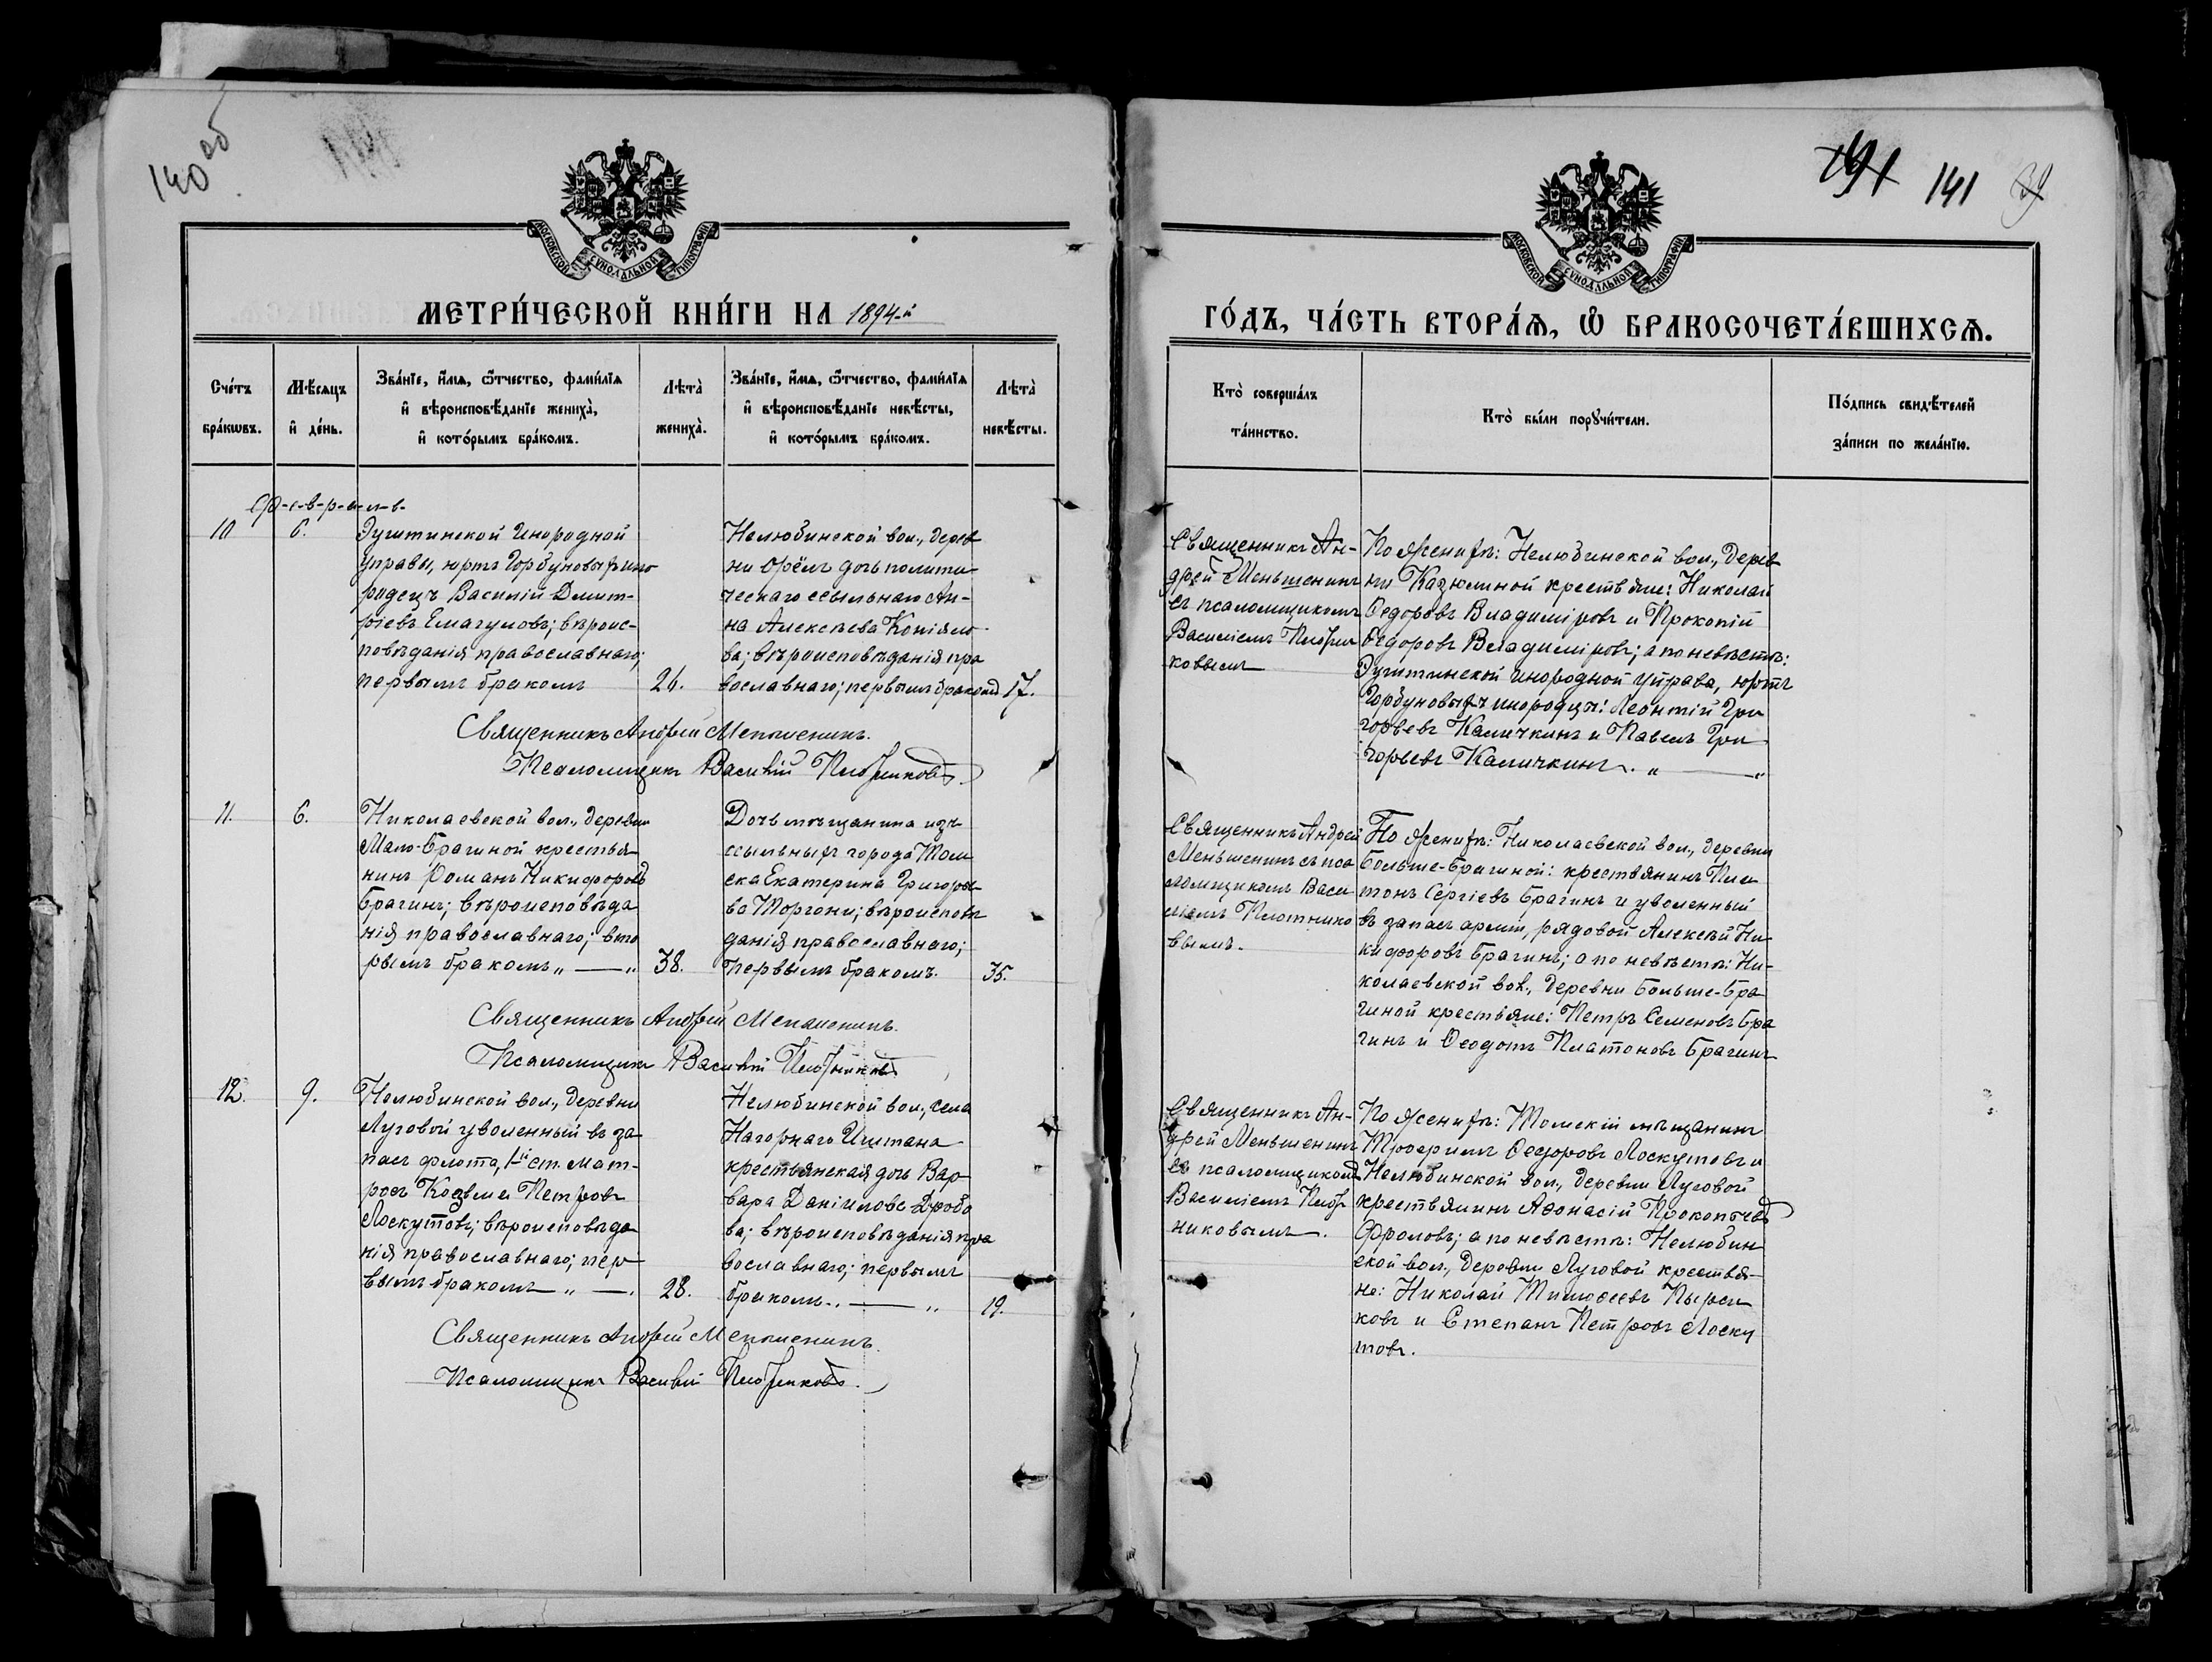 140 об
МОСКОВСКОЙ СѴНОДАЛЬНОЙ ТИПОГРАФІИ
МЕТРИ́ЧЕСКОЙ КНИ́ГИ НА 1894-й
Сче́тъ бра́кѡвъ.
Мѣ́сяцъ и҆ де́нь.
Зва́нїе, и҆́мѧ, ѻ҆́тчество, фами́лїѧ
и҆ вѣроисповѣ́данїе жениха̀,
и҆ кото́рымъ бра́комъ.
Лѣта̀ жениха̀.
Зва́нїе, и҆́мѧ, ѻ҆́тчество, фами́лїѧ
и҆ вѣроисповѣ́данїе невѣ́сты,
и҆ кото́рымъ бра́комъ.
Лѣта̀ невѣ́сты.
Ф-е-в-р-а-л-ь-
10
6.
Эуштинской Инородной
управы, юртъ Горбуновыхъ ино
родецъ Василій Димит-
ріевъ Емагуловъ; вѣроис-
повѣданія православнаго;
первымъ бракомъ
26.
Нелюбинской вол., дерев
ни Орёлъ дочь полити
ческаго ссыльнаго Ан-
на Алексѣева
ва; вѣроисповѣданія пра
вославнаго; первымъ бракомъ
17.
Священникъ Андрей Меньшенинъ.
Псаломщикъ Василій Плотниковъ.
11.
6.
Николаевской вол., деревни
Мало-Брагиной крестья
нинъ Романъ Никифоровъ
Брагинъ; вѣроисповѣда
нія православнаго; вто
рымъ бракомъ „ — „
38.
Дочь мѣщанина изъ
ссыльныхъ города Том
ска Екатерина Григорье
ва Моргони; вѣроисповѣ
данія православнаго;
первымъ бракомъ.
35.
Священникъ Андрей Меньшенинъ.
Псаломщикъ Василій Плотниковъ
12.
9.
Нелюбинской вол., деревни
Луговой уволенный въ за
пасъ флота, 1-й ст. мат-
росъ Козьма Петровъ
Лоскутовъ; вѣроисповѣда
нія православнаго; пер
вымъ бракомъ „ — .
28.
Нелюбинской вол., села
Нагорнаго Иштана
крестьянская дочь Вар
вара Даніилова Дробо
ва; вѣроисповѣданія пра
вославнаго; первымъ
бракомъ „ — „
19.
Священникъ Андрей Меньшенинъ.
Псаломщикъ Василій Плотниковъ.
141 39
МОСКОВСКОЙ СѴНОДАЛЬНОЙ ТИПОГРАФІИ
ГО́ДЪ, ЧА́СТЬ ВТОРА́Ѧ, Ѽ БРАКОСОЧЕТА́ВШИХСѦ.
Кто̀ соверша́лъ
та́инство.
Кто̀ бы́ли порꙋчи́тели.
По́дпись свидѣ́телей
за́писи по жела́нїю.
Священникъ Ан-
дрей Меньшенинъ
съ псаломщикомъ
Василіемъ Плотни
ковымъ
По женихѣ: Нелюбинской вол., дерев
ни Казюлиной крестьяне: Николай
Ѳедоровъ Владиміровъ и Прокопій
Ѳедоровъ Владиміровъ; а по невѣстѣ:
Эуштинской инородной управы, юртъ
Горбуновыхъ инородцы: Леонтій Гри
горьевъ Каличкинъ и Павелъ Гри
горьевъ Каличкинъ. „ — „
Священникъ Андрей
Меньшенинъ съ пса
ломщикомъ Васи
ліемъ Плотнико
вымъ.
По женихѣ: Николаевской вол., деревни
Больше-Брагиной: крестьянинъ Пла
тонъ Сергіевъ Брагинъ и уволенный
въ запасъ арміи, рядовой Алексѣй Ни-
кифоровъ Брагинъ; а по невѣстѣ: Ни-
колаевской вол., деревни Больше-Бра
гиной крестьяне: Петръ Семеновъ Бра
гинъ и Ѳеодотъ Платоновъ Брагинъ
Священникъ Ан-
дрей Меньшенинъ
съ псаломщикомъ
Василіемъ Плот
никовымъ.
По женихѣ: Томскій мѣщанинъ
Трофимъ Ѳедоровъ Лоскутовъ и
Нелюбинской вол., деревни Луговой
крестьянинъ Аѳонасій Прокопьевъ
Фроловъ; а по невѣстѣ: Нелюбин
ской вол., деревни Луговой крестья-
не: Николай Тимоѳеевъ
ковъ и Степанъ Петровъ Лоску
товъ.